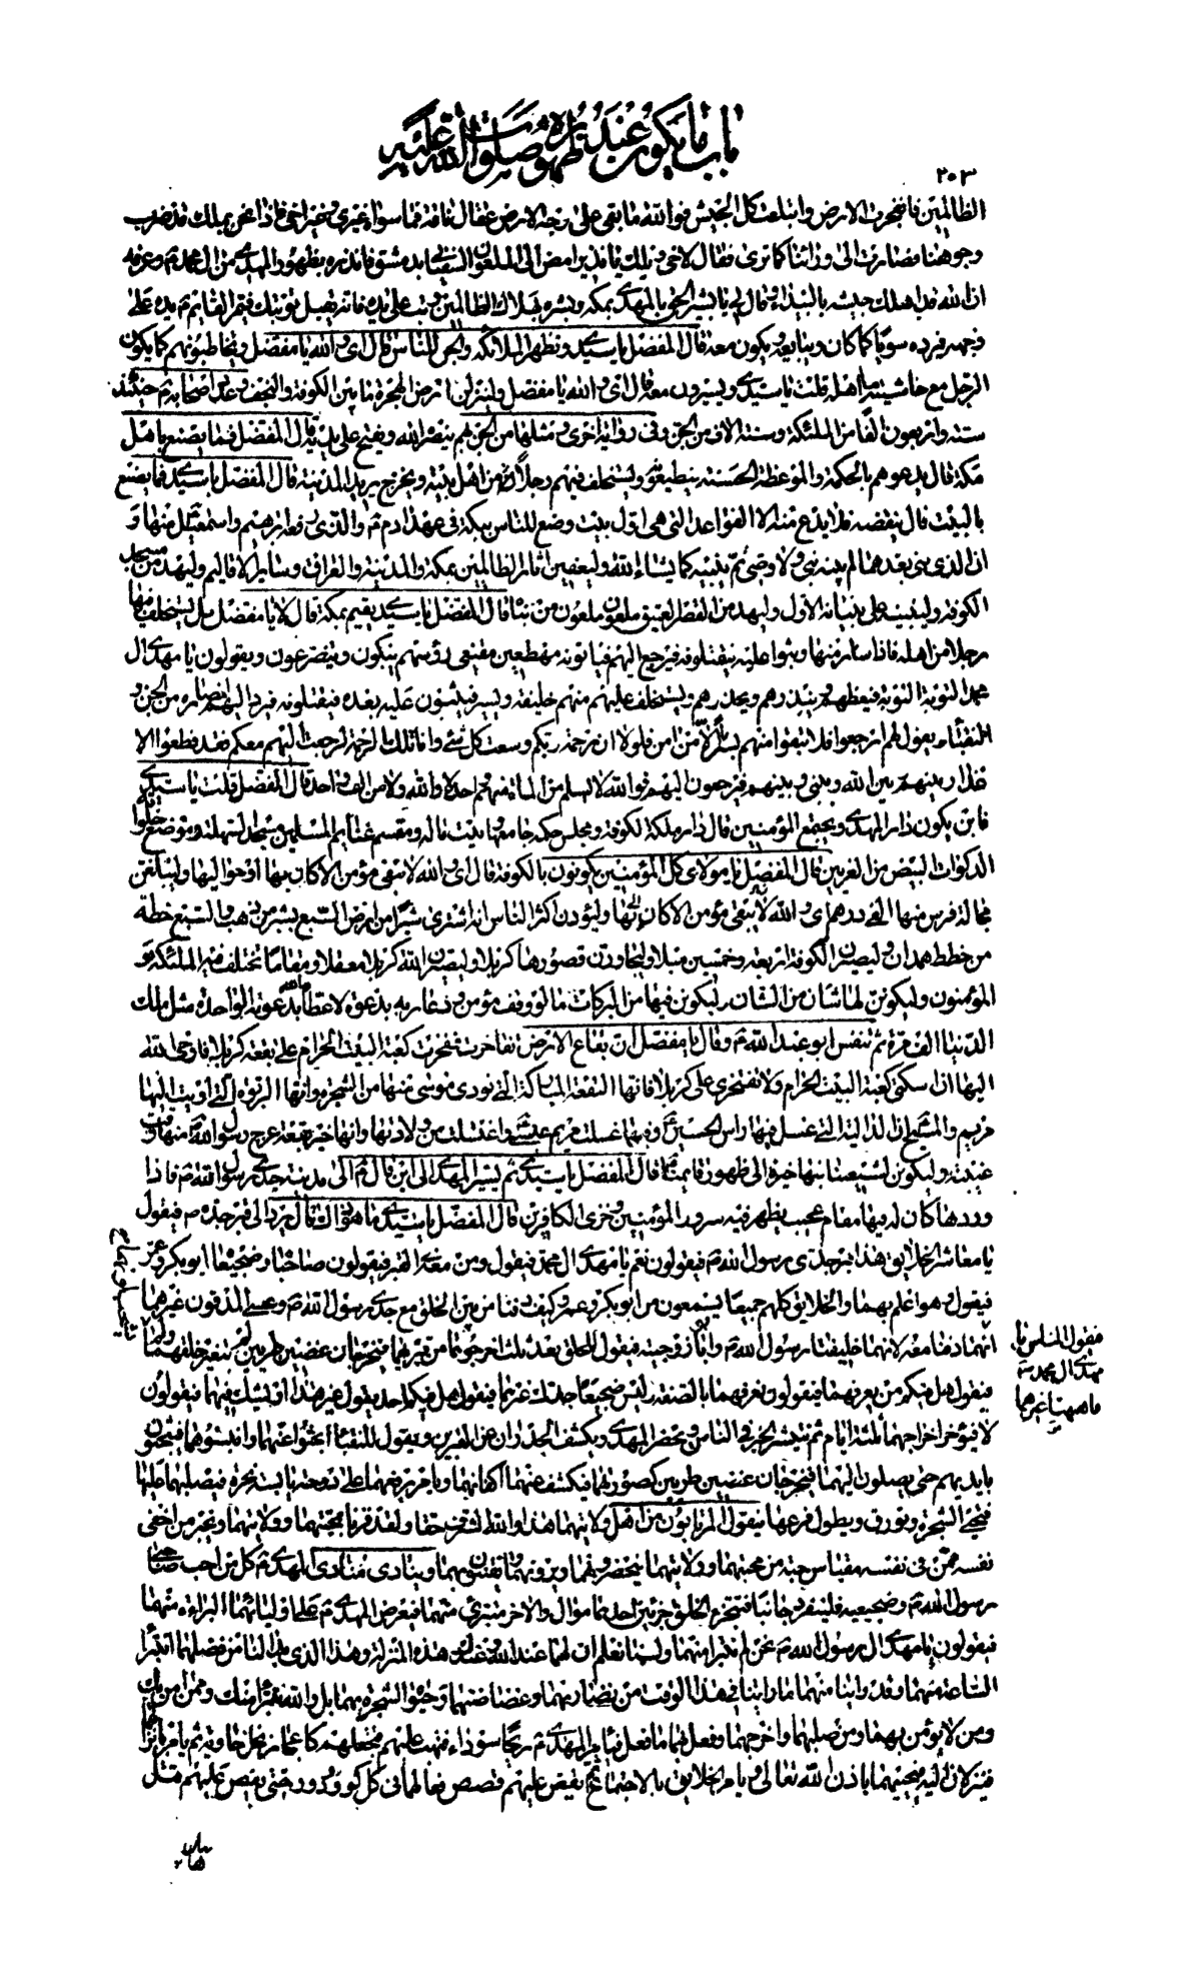 باب ما يكون عند ظهوره صلوات الله عليه
٢٠٣
الظالمين فانفجرت الارض وابتلعت كل الجيش فوالله ما بقي على وجه الارض عقال ناقة فما سواه غيري وغير اخي فاذا نحن بملك قد ضرب
وجوهنا فصارت الى ورائنا كما ترى فقال لاخي ويلك يا نذير امض الى الملعون السفياني بدمشق فانذره بظهور المهدي من ال محمد وعرفه
ان الله قد اهلك جيشه بالبيداء وقال لي يا بشير الحق بالمهدي بمكة وبشره بهلاك الظالمين وتب على يده فانه يقبل توبتك فيمر القائم يده على
وجهه فيرده سويا كما كان ويبايعه ويكون معه قال المفضل يا سيدي وتظهر الملائكة والجن للناس قال اي والله يا مفضل ويخاطبونهم كما يكون
الرجل مع حاشيته واهله قلت يا سيدي ويسيرون معه قال اي والله يا مفضل ولينزلن ارض الهجرة ما بين الكوفة والنجف وعدد اصحابه حينئذ
ستة واربعون الفا من الملئكة وستة الاف من الجن وفي رواية اخرى ومثلها من الجن بهم ينصره الله ويفتح على يديه قال المفضل فما يصنع باهل
مكة قال يدعوهم بالحكمة والموعظة الحسنة فيطيعوه ويستخلف فيهم رجلا من اهل بيته ويخرج يريد المدينة قال المفضل يا سيدي فما يصنع
بالبيت قال ينقضه فلا يدع منه الا القواعد التي هي اول بيت وضع للناس ببكة في عهد ادم والذي رفعه ابرهيم واسمعيل منها و
ان الذي بني بعدهما لم يبنه نبي ولا وصي ثم يبنيه كما يشاء الله وليعفين اثار الظالمين بمكة والمدينة والعراق وسائر الاقاليم وليهدمن مسجد
الكوفة وليبنينه على بنيانه الاول وليهدمن القصر العتيق ملعون ملعون من بناه قال المفضل يا سيدي يقيم بمكة قال لا يا مفضل بل يستخلف منها
رجلا من اهله فاذا سار منها وثبوا عليه فيقتلونه فيرجع اليهم فيأتونه مهطعين مقنعي رؤسهم يبكون ويتضرعون ويقولون يا مهدي ال
محمد التوبة التوبة فيعظهم وينذرهم ويحذرهم ويستخلف عليهم منهم خليفة ويسير فيثبون عليه بعده فيقتلونه فيرد اليهم انصاره من الجن و
النقباء ويقول لهم ارجعوا فلا تبقوا منهم بشرا الا من امن فلولا ان رحمة ربكم وسعت كل شئ وانا تلك الرحمة لرجعت اليهم معكم فقد قطعوا الا
عذار بينهم وبين الله وبيني وبينهم فيرجعون اليهم فوالله لا يسلم من المائة منهم واحد لا والله ولا من الف واحد قال المفضل قلت يا سيدي
فاين يكون دار المهدي ومجتمع المؤمنين قال دار ملكه الكوفة ومجلس حكمه جامعها وبيت ماله ومقسم غنايم المسلمين مسجد السهلة وموضع خلواته
الذكوات البيض من الغريين قال المفضل يا مولاي كل المؤمنين يكونون بالكوفة قال اي والله لا يبقى مؤمن الا كان بها او حواليها وليبلغن
مجالة فرس منها الفي درهم اي والله لا يبقى مؤمن الا كان بها وليودن اكثر الناس انه اشترى شبرا من ارض السبع بشبر من ذهب والسبع خطة
من خطط همدان وليصيرن الكوفة اربعة وخمسين ميلا وليجاورن قصورها كربلا وليصيرن الله كربلا معقلا ومقاما تختلف فيه الملئكة و
المؤمنون وليكونن لها شان من الشان وليكونن فيها من البركات ما لو وقف مؤمن ودعا ربه بدعوة لاعطاه الله بدعوته الواحدة مثل ملك
الدنيا الف مرة ثم تنفس ابو عبد الله وقال يا مفضل ان بقاع الارض تفاخرت ففخرت كعبة البيت الحرام على بقعة كربلا فاوحى الله
اليها ان اسكتي كعبة البيت الحرام ولا تفتخري على كربلا فانها البقعة المباركة التي نودي موسى منها من الشجرة وانها الربوة التي اويت اليها
مريم والمسيح وانها الدالية التي غسل فيها راس الحسين وفيها غسلت مريم عيسى واغتسلت من ولادتها وانها خير بقعة عرج رسول الله منها وقت
غيبته وليكونن لشيعتنا فيها خيرة الى ظهور قائمنا قال المفضل يا سيدي ثم يسير المهدي الى اين قال الى مدينة جدي رسول الله فاذا
وردها كان له فيها مقام عجيب يظهر فيه سرور المؤمنين وخزي الكافرين قال المفضل يا سيدي ما هو ذاك قال يرد الى قبر جده فيقول
يا معاشر الخلايق هذا قبر جدي رسول الله فيقولون نعم يا مهدي ال محمد فيقول ومن معه في القبر فيقولون صاحباه وضجيعاه ابو بكر وعمر
فيقول وهو اعلم بهما والخلايق كلهم جميعا يسمعون من ابو بكر وعمر وكيف دفنا من بين الخلق مع جدي رسول الله وعسى المدفون غيرهما
فيقول الناس يا
مهدي ال محمد
ما ههنا غيرهما
انهما دفنا معه لانهما خليفتا رسول الله وابوا زوجتيه فيقول للخلق بعد ثلث اخرجوهما من قبريهما فيخرجان غضين طريين لم يتغير خلقهما
فيقول هل فيكم من يعرفهما فيقولون نعرفهما بالصفة وليس ضجيعا جدك غيرهما فيقول هل فيكم احد يقول غير هذا او يشك فيهما فيقولون
لا فيؤخر اخراجهما ثلثة ايام ثم ينتشر الخبر في الناس ويحضر المهدي ويكشف الجدران عن القبرين ويقول للنقباء ابحثوا عنهما وانبشوهما فيبحثون
بايديهم حتى يصلون اليهما فيخرجان غضين طريين كصورتهما فيكشف عنهما اكفانهما ويامر برفعهما على دوحة يابسة نخرة فيصلبهما عليها
فتحيى الشجرة وتورق ويطول فرعها فيقول المرتابون من اهل ولايتهما هذا والله الشرف حقا ولقد فزنا بمحبتهما وولايتهما ويخبر من اخفى
نفسه ممن في نفسه مقياس حبة من محبتهما وولايتهما فيحضرونهما ويرونهما ويفتنون بهما وينادي منادي المهدي كل من احب صاحبي
رسول الله وضجيعيه فلينفرد جانبا فتتجزء الخلق جزئين احدهما موال والاخر متبرئ منهما فيعرض المهدي على اوليائهما البراءة منهما
فيقولون يا مهدي ال رسول الله نحن لم نتبرا منهما ولسنا نعلم ان لهما عند الله وعندك هذه المنزلة وهذا الذي بدا لنا من فضلهما انتبرا
الساعة منهما وقد راينا منهما ما راينا في هذا الوقت من نضارتهما وغضاضتهما وحيوة الشجرة بهما بل والله نتبرا منك وممن امن بك
ومن لا يؤمن بهما ومن صلبهما واخرجهما وفعل بهما ما فعل فيامر المهدي ريحا سوداء فتهب عليهم فتجعلهم كاعجاز نخل خاوية ثم يامر بانزالهما
فينزلان اليه فيحييهما باذن الله تعالى ويامر الخلايق بالاجتماع ثم يقص عليهم قصص فعالهما في كل كور ودور حتى يقص عليهم قتل
هابيل